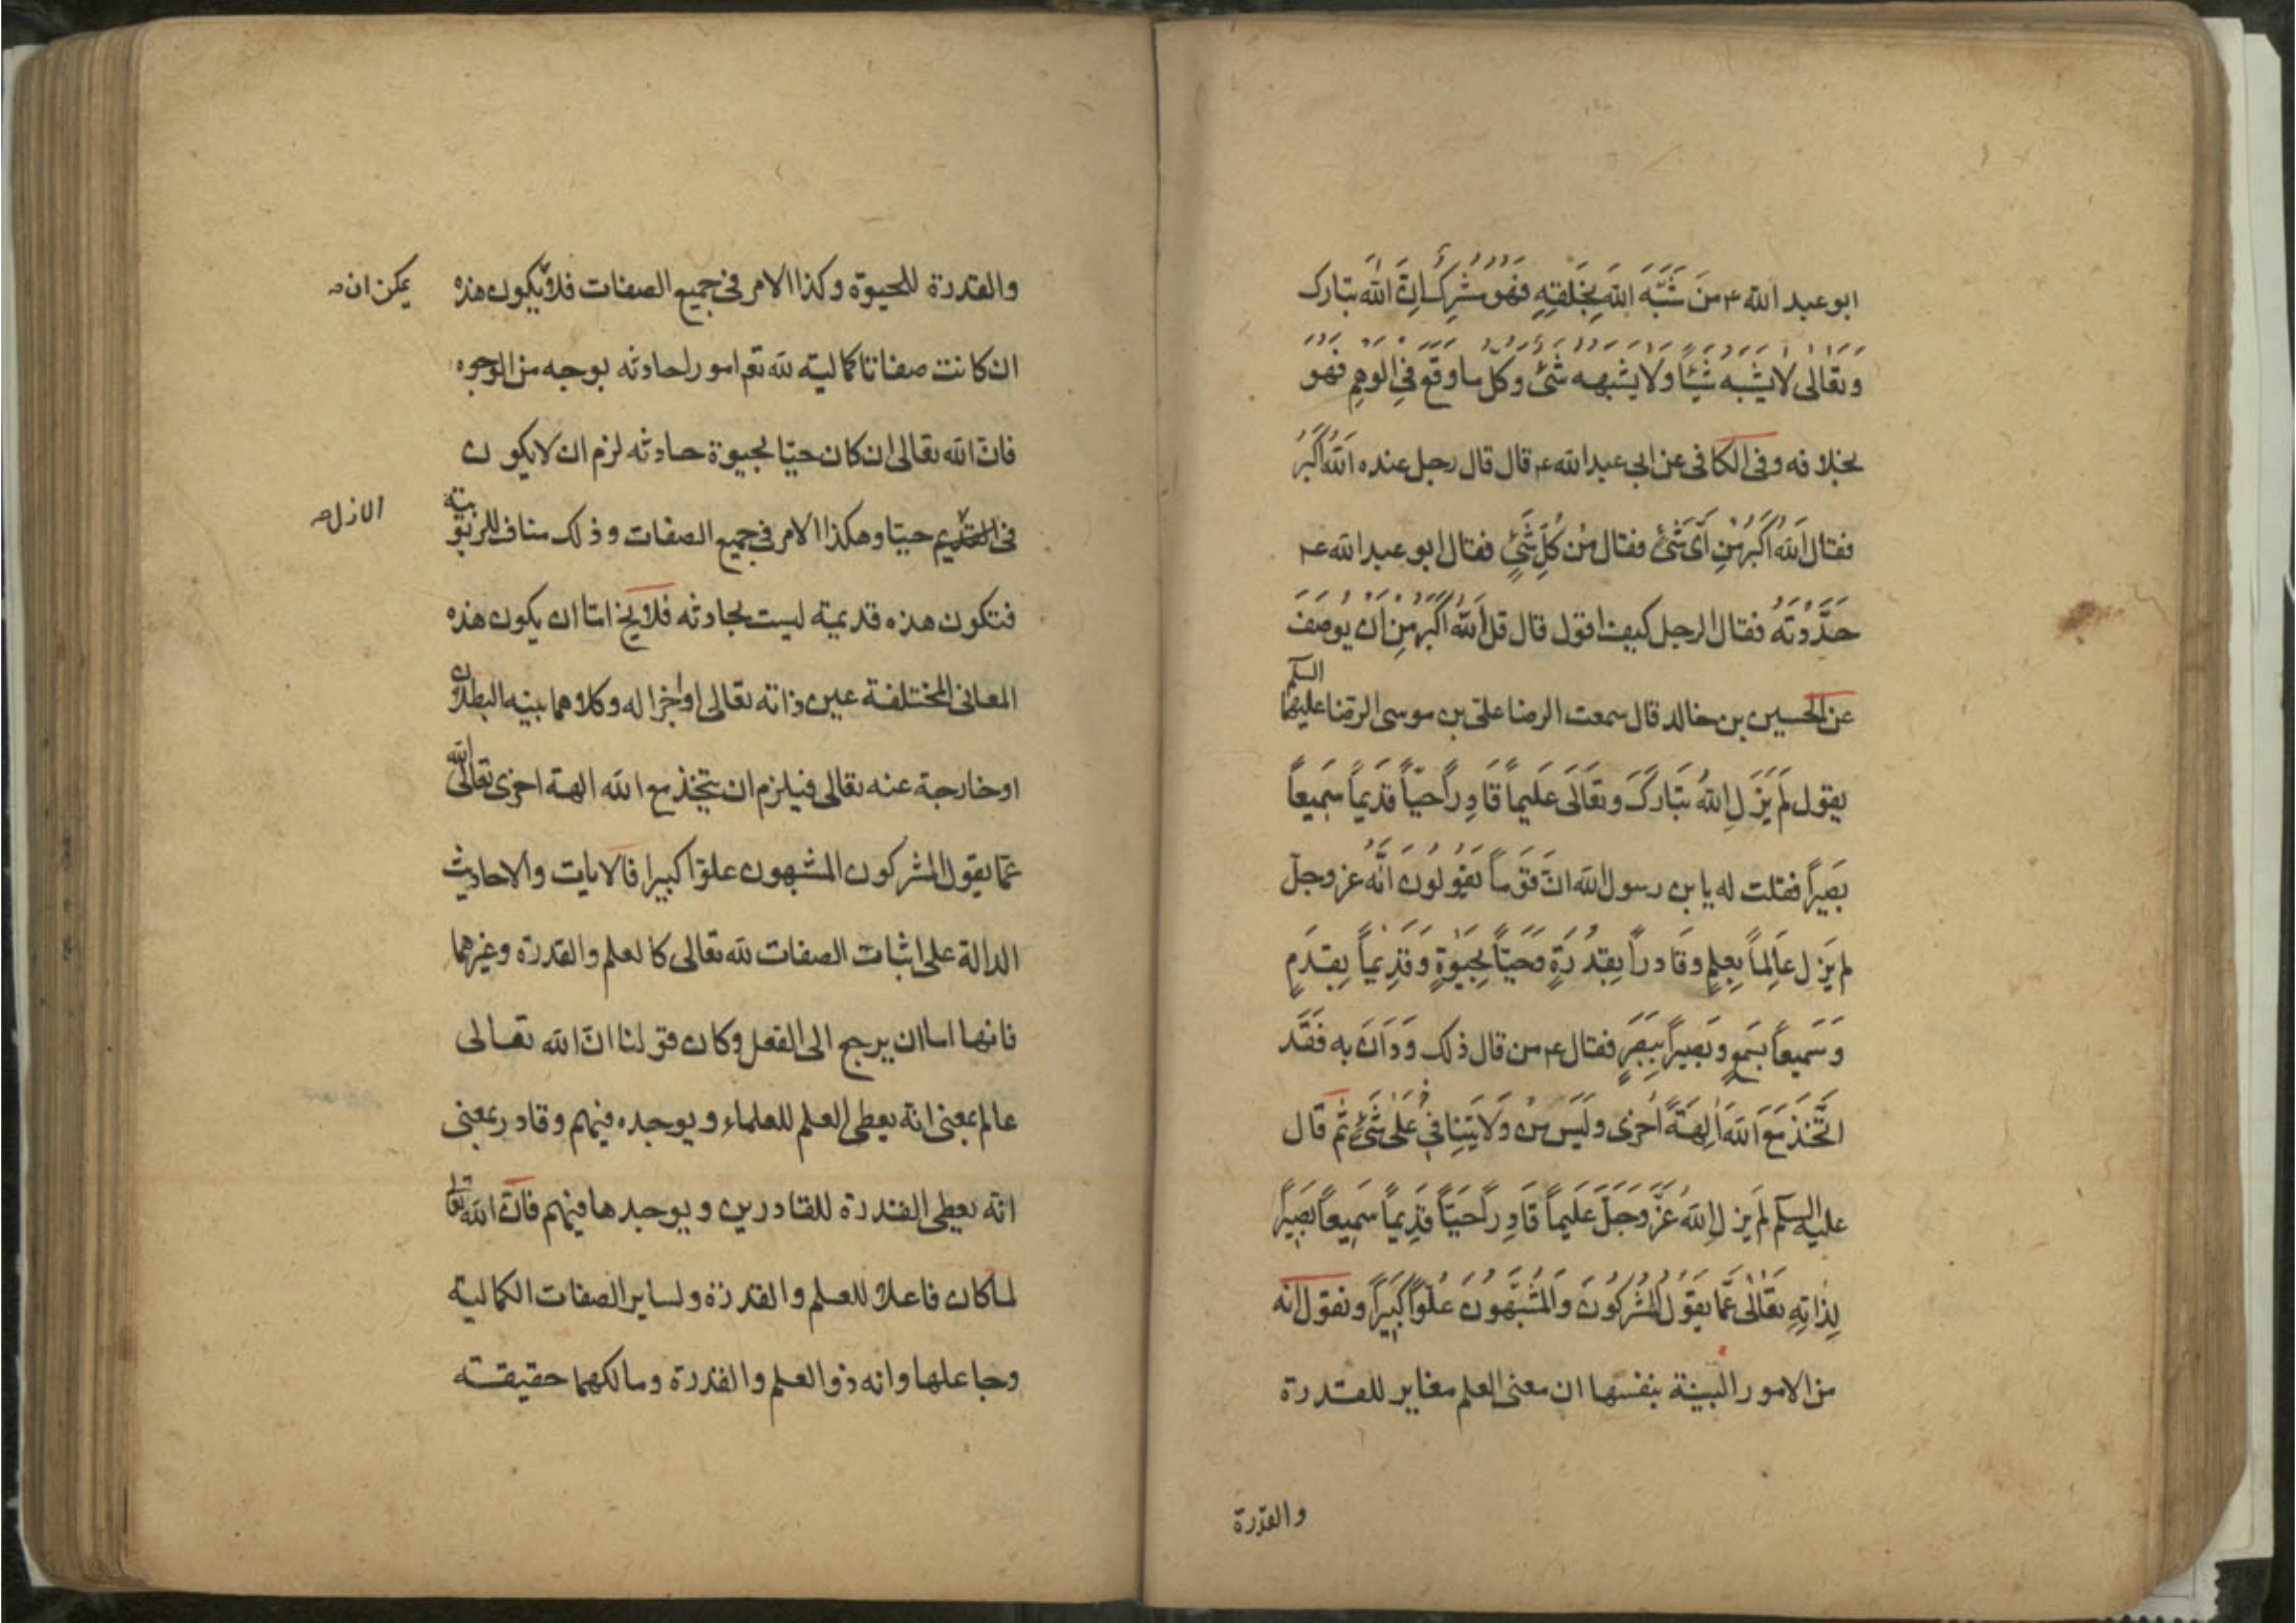 ابو عبد الله ع من شَبَّهَ اللهَ بِخَلقِهِ فَهُوَ مُشْرِكٌ اِنَّ اللهَ تبارك
وتَعَالى لا يُشْبِه شَيْئًا وَلا يُشْبهه شَئٌ وَكُلّ ما وَقَعَ فِي الْوَهِمِ فَهُوَ
بخلافه وفى الكافى عن ابى عبد الله ع قال قال رجل عنده اَللهُ اَكْبَرُ
فقال اَللهُ اَكْبَرُ مِنْ اَىِّ شَئٍ فقال مِنْ كُلِّ شَئٍ فقال ابو عبد الله ع
حَدَّدْتَهُ فقال الرجل كيف اقول قال قل اَللهُ اَكْبَرُ مِنْ اَنْ يُوصَفَ
عن الحسين بن خالد قال سمعت الرضا على بن موسى الرضا عليهما السلم
يقول لَمْ يَزَلِ اللهُ تَبَارَكَ وتَعَالَى عَلِيماً قَادِراً حَيّاً قَدِيماً سَمِيعاً
بَصِيراً فقلت له يا بن رسول الله انّ قَوْماً يَقُولُونَ اَنَّهُ عز وجلّ
لم يَزل عَالِماً بِعِلمٍ وقَادراً بِقُدْرَةٍ وَحَيّاً بِحَيٰوةٍ وَقَدِيماً بِقِدَمٍ
وَسَمِيعاً بِسَمعٍ وَبَصِيراً بِبَصَرٍ فقال ع من قال ذلك وَدَانَ به فَقَد
اتَّخَذَ مَعَ اللهَ اٰلِهَةً اُخْرى وَلَيْسَ مِنْ وَلايَتِنا عَلٰى شَئٍ ثُمّ قال
عليه السلم لَمْ يَزلِ اللهُ عَزَّ وَجَلَّ عَلِيماً قَادِراً حَيّاً قَدِيماً سَمِيعاً بَصِيراً
لِذَاتِهِ تَعَالٰى عَمَّا يَقُولُ الْمُشْرِكُونَ وَالْمُشَبِّهُونَ عُلُوّاً كَبِيراً ونقول انّه
من الامور البيّنة بنفسها ان معنى العلم مغاير للقدرة
والقدرة
والقدرة للحيوة وكذا الامر فى جميع الصفات فلا يكون هذه
يمكن ان صـ
ان كانت صفاتا كمالية لله تعم امورا حادثه بوجه من الوجوه
فانّ الله تعالى ان كان حيّا بحيوة حادثه لزم ان لا يكون
فى القديم حيّا وهكذا الامر فى جميع الصفات وذلك مناف للربوبيّة
الازل صـ
فتكون هذه قديمة ليست بحادثه فلا يخ امّا ان يكون هذه
المعانى المختلفة عين ذاته تعالى او اجزا له وكلاهما بينه البطلان
او خارجة عنه تعالى فيلزم ان يتخذ مع الله الهة اخرى تعالى الله
عمّا يقول المشركون المشبهون علوّا كبيرا فالايات والاحاديث
الدالة على اثبات الصفات لله تعالى كالعلم والقدرة وغيرهما
فانها اما ان يرجع الى الفعل وكان قولنا انّ الله تعالى
عالم بمعنى انّه يعطى العلم للعلماء ويوجده فيهم وقادر بمعنى
انّه يعطى القدرة للقادرين ويوجدها فيهم فانّ الله تعالى
لمّا كان فاعلا للعلم والقدرة ولساير الصفات الكمالية
وجاعلها وانه ذو العلم والقدرة ومالكهما حقيقة